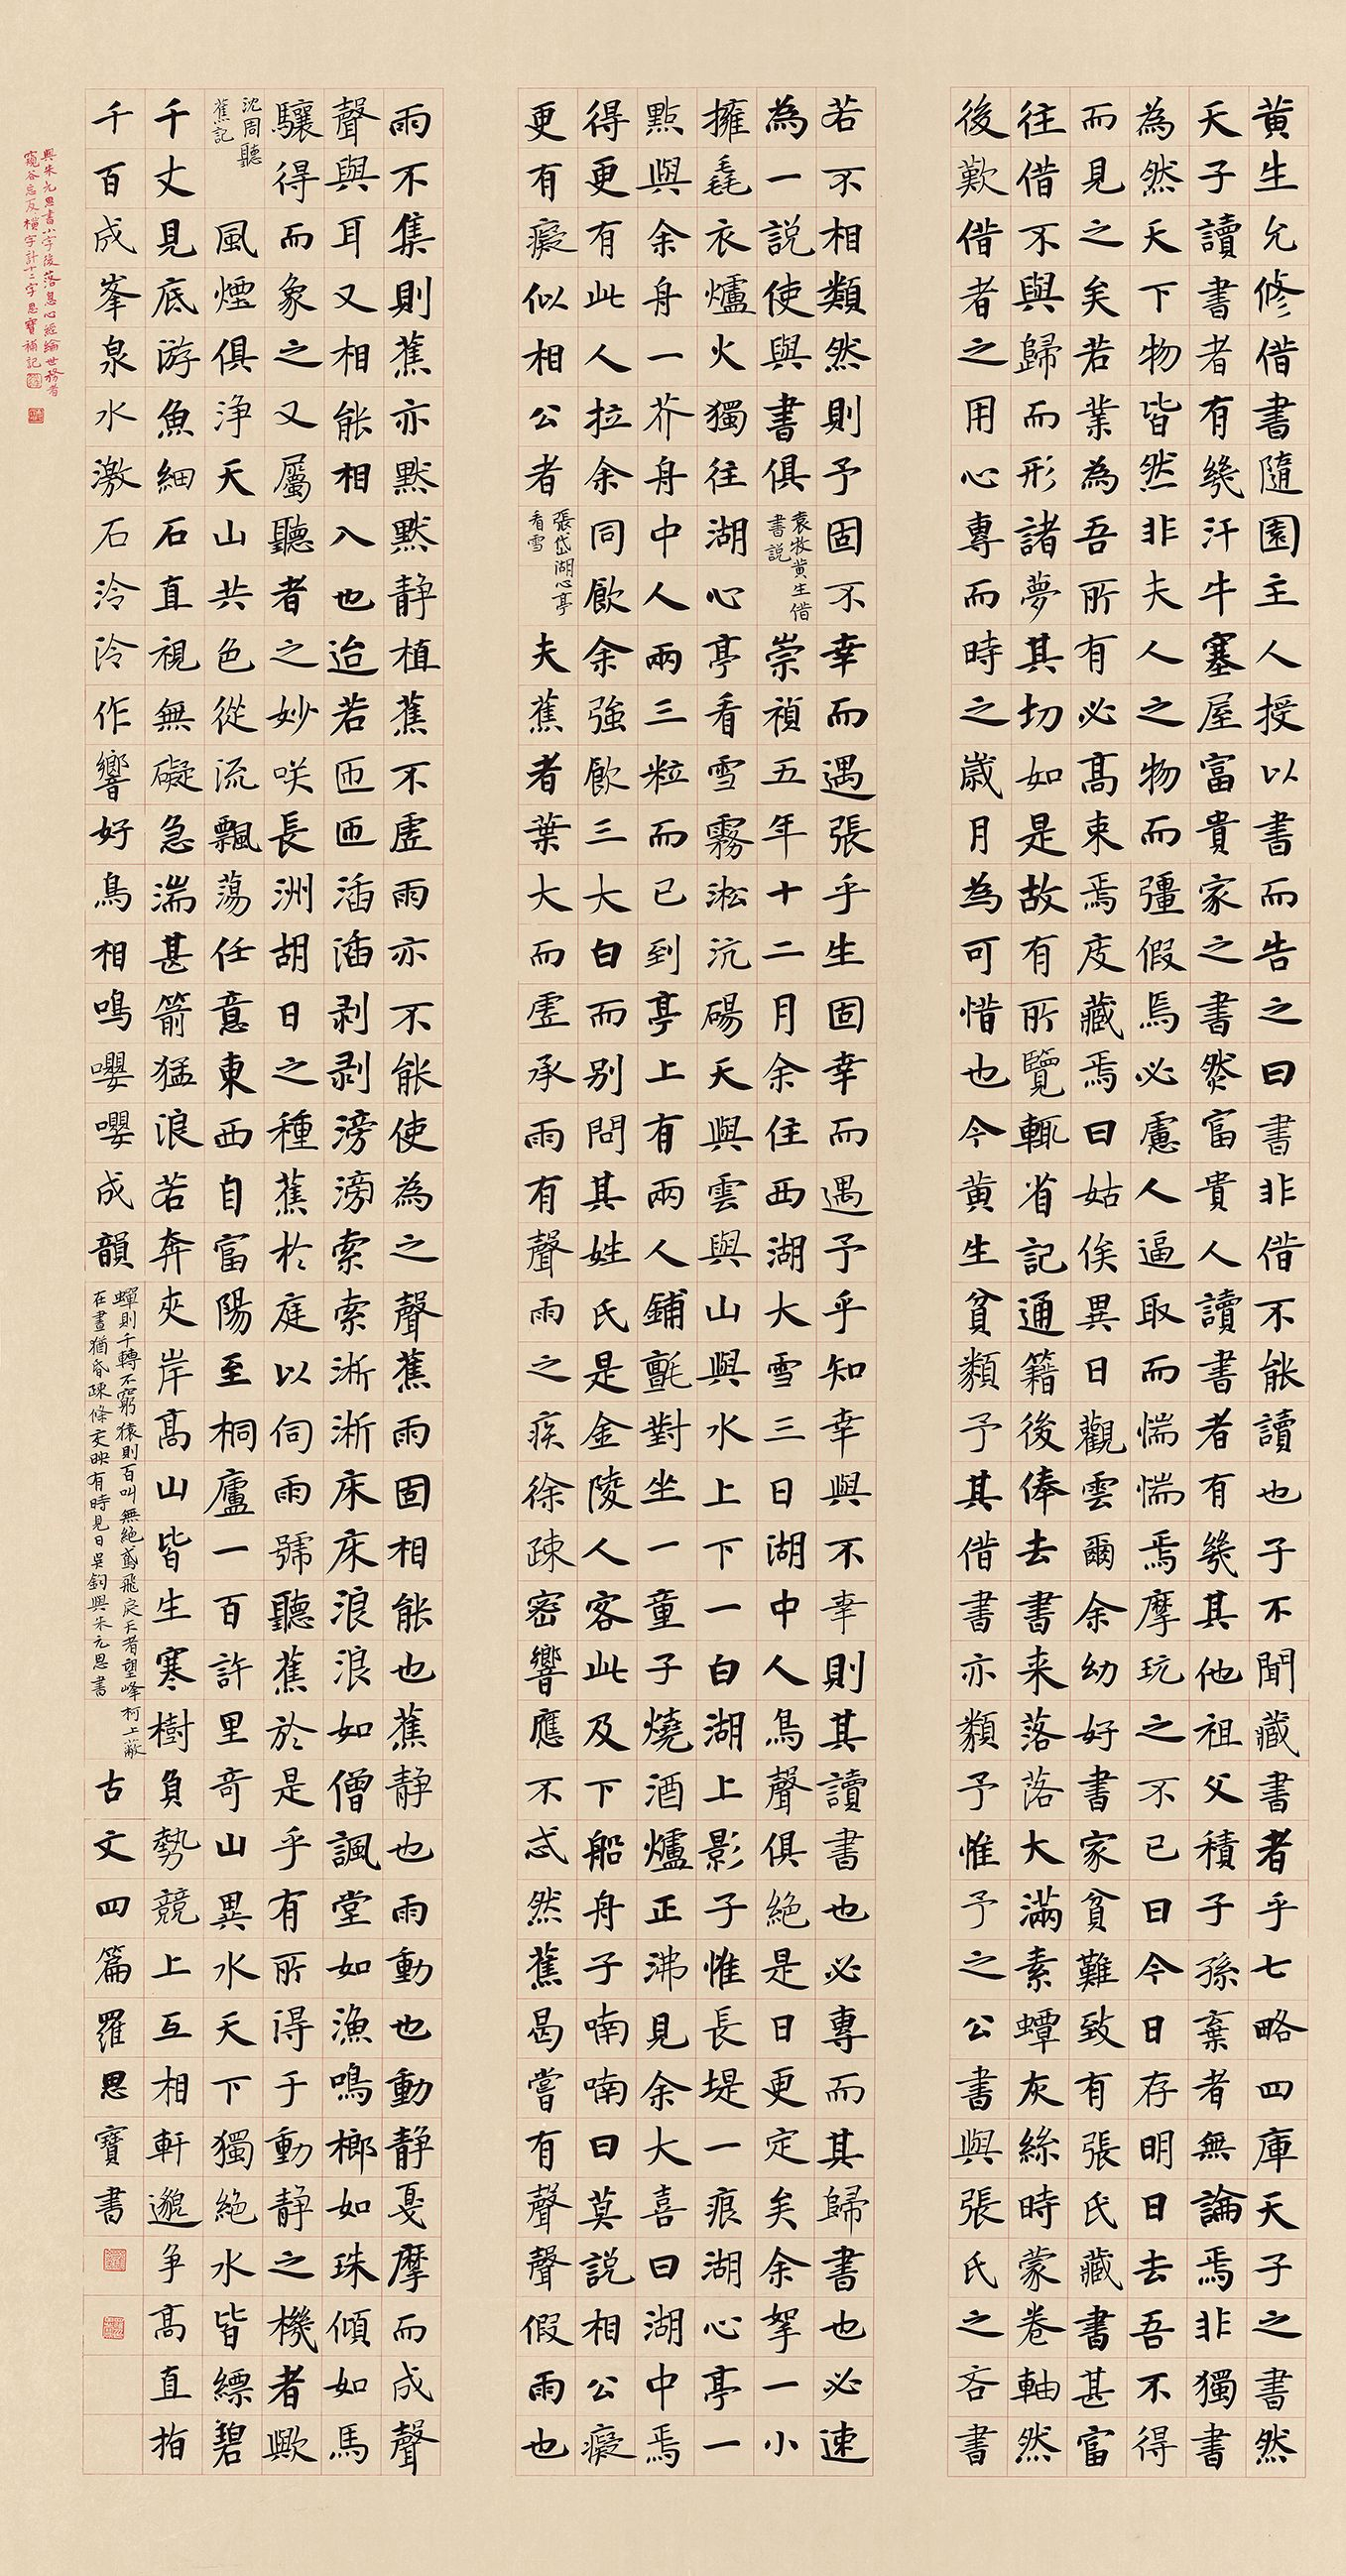 黃生允修借書隨園主人授以書而告之曰書非借不能讀也子不聞藏書者乎七略四庫天子之書然
天子讀書者有幾汗牛塞屋富貴家之書然富貴人讀書者有幾其他祖父積子孫棄者無論焉非獨書
為然天下物皆然非夫人之物而彊假焉必慮人逼取而惴惴焉摩玩之不已曰今日存明日去吾不得
而見之矣若業為吾所有必高束焉庋藏焉曰姑俟異日觀雲爾余幼好書家貧難致有張氏藏書甚富
往借不與歸而形諸夢其切如是故有所覽輒省記通籍後俸去書来落落大滿素蟫灰絲時蒙卷軸然
後歎借者之用心專而時之歲月為可惜也今黃生貧類予其借書亦類予惟予之公書與張氏之吝書
若不相類然則予固不幸而遇張乎生固幸而遇予乎知幸與不幸則其讀書也必專而其歸書也必速
為一說使與書俱
袁枚黃生借
書説
崇禎五年十二月余住西湖大雪三日湖中人鳥聲俱絕是日更定矣余拏一小
擁毳衣爐火獨往湖心亭看雪霧淞沆碭天與雲與山與水上下一白湖上影子惟長堤一痕湖心亭一
點與余舟一芥舟中人兩三粒而已到亭上有兩人鋪氈對坐一童子燒酒爐正沸見余大喜曰湖中焉
得更有此人拉余同飲余強飲三大白而別問其姓氏是金陵人客此及下船舟子喃喃曰莫説相公癡
更有癡似相公者
張岱湖心亭
看雪
夫蕉者葉大而虛承雨有聲雨之疾徐疎密響應不忒然蕉曷嘗有聲聲假雨也
雨不集則蕉亦默默静植蕉不虛雨亦不能使為之聲蕉雨固相能也蕉静也雨動也動静戛摩而成聲
聲與耳又相能相入也迨若匝匝湉湉剥剥滂滂索索淅淅床床浪浪如僧諷堂如漁鳴榔如珠傾如馬
驤得而象之又屬聽者之妙咲長洲胡日之種蕉於庭以伺雨號聽蕉於是乎有所得于動静之機者歟
沈周聽
蕉記
風煙俱浄天山共色從流飄蕩任意東西自富陽至桐廬一百許里奇山異水天下獨絕水皆縹碧
千丈見底游魚細石直視無礙急湍甚箭猛浪若奔夾岸高山皆生寒樹負勢競上互相軒邈争高直指
千百成峯泉水激石泠泠作響好鳥相鳴嚶嚶成韻
蟬則千轉不窮猿則百叫無絕鳶飛戾天者望峰柯上蔽
在晝猶昏疎條交映有時見日吳鈞與朱元思書
古文四篇羅思寶書
與朱元思書小字後落息心經綸世務者
窺谷忘反橫字計十二字思寶補記